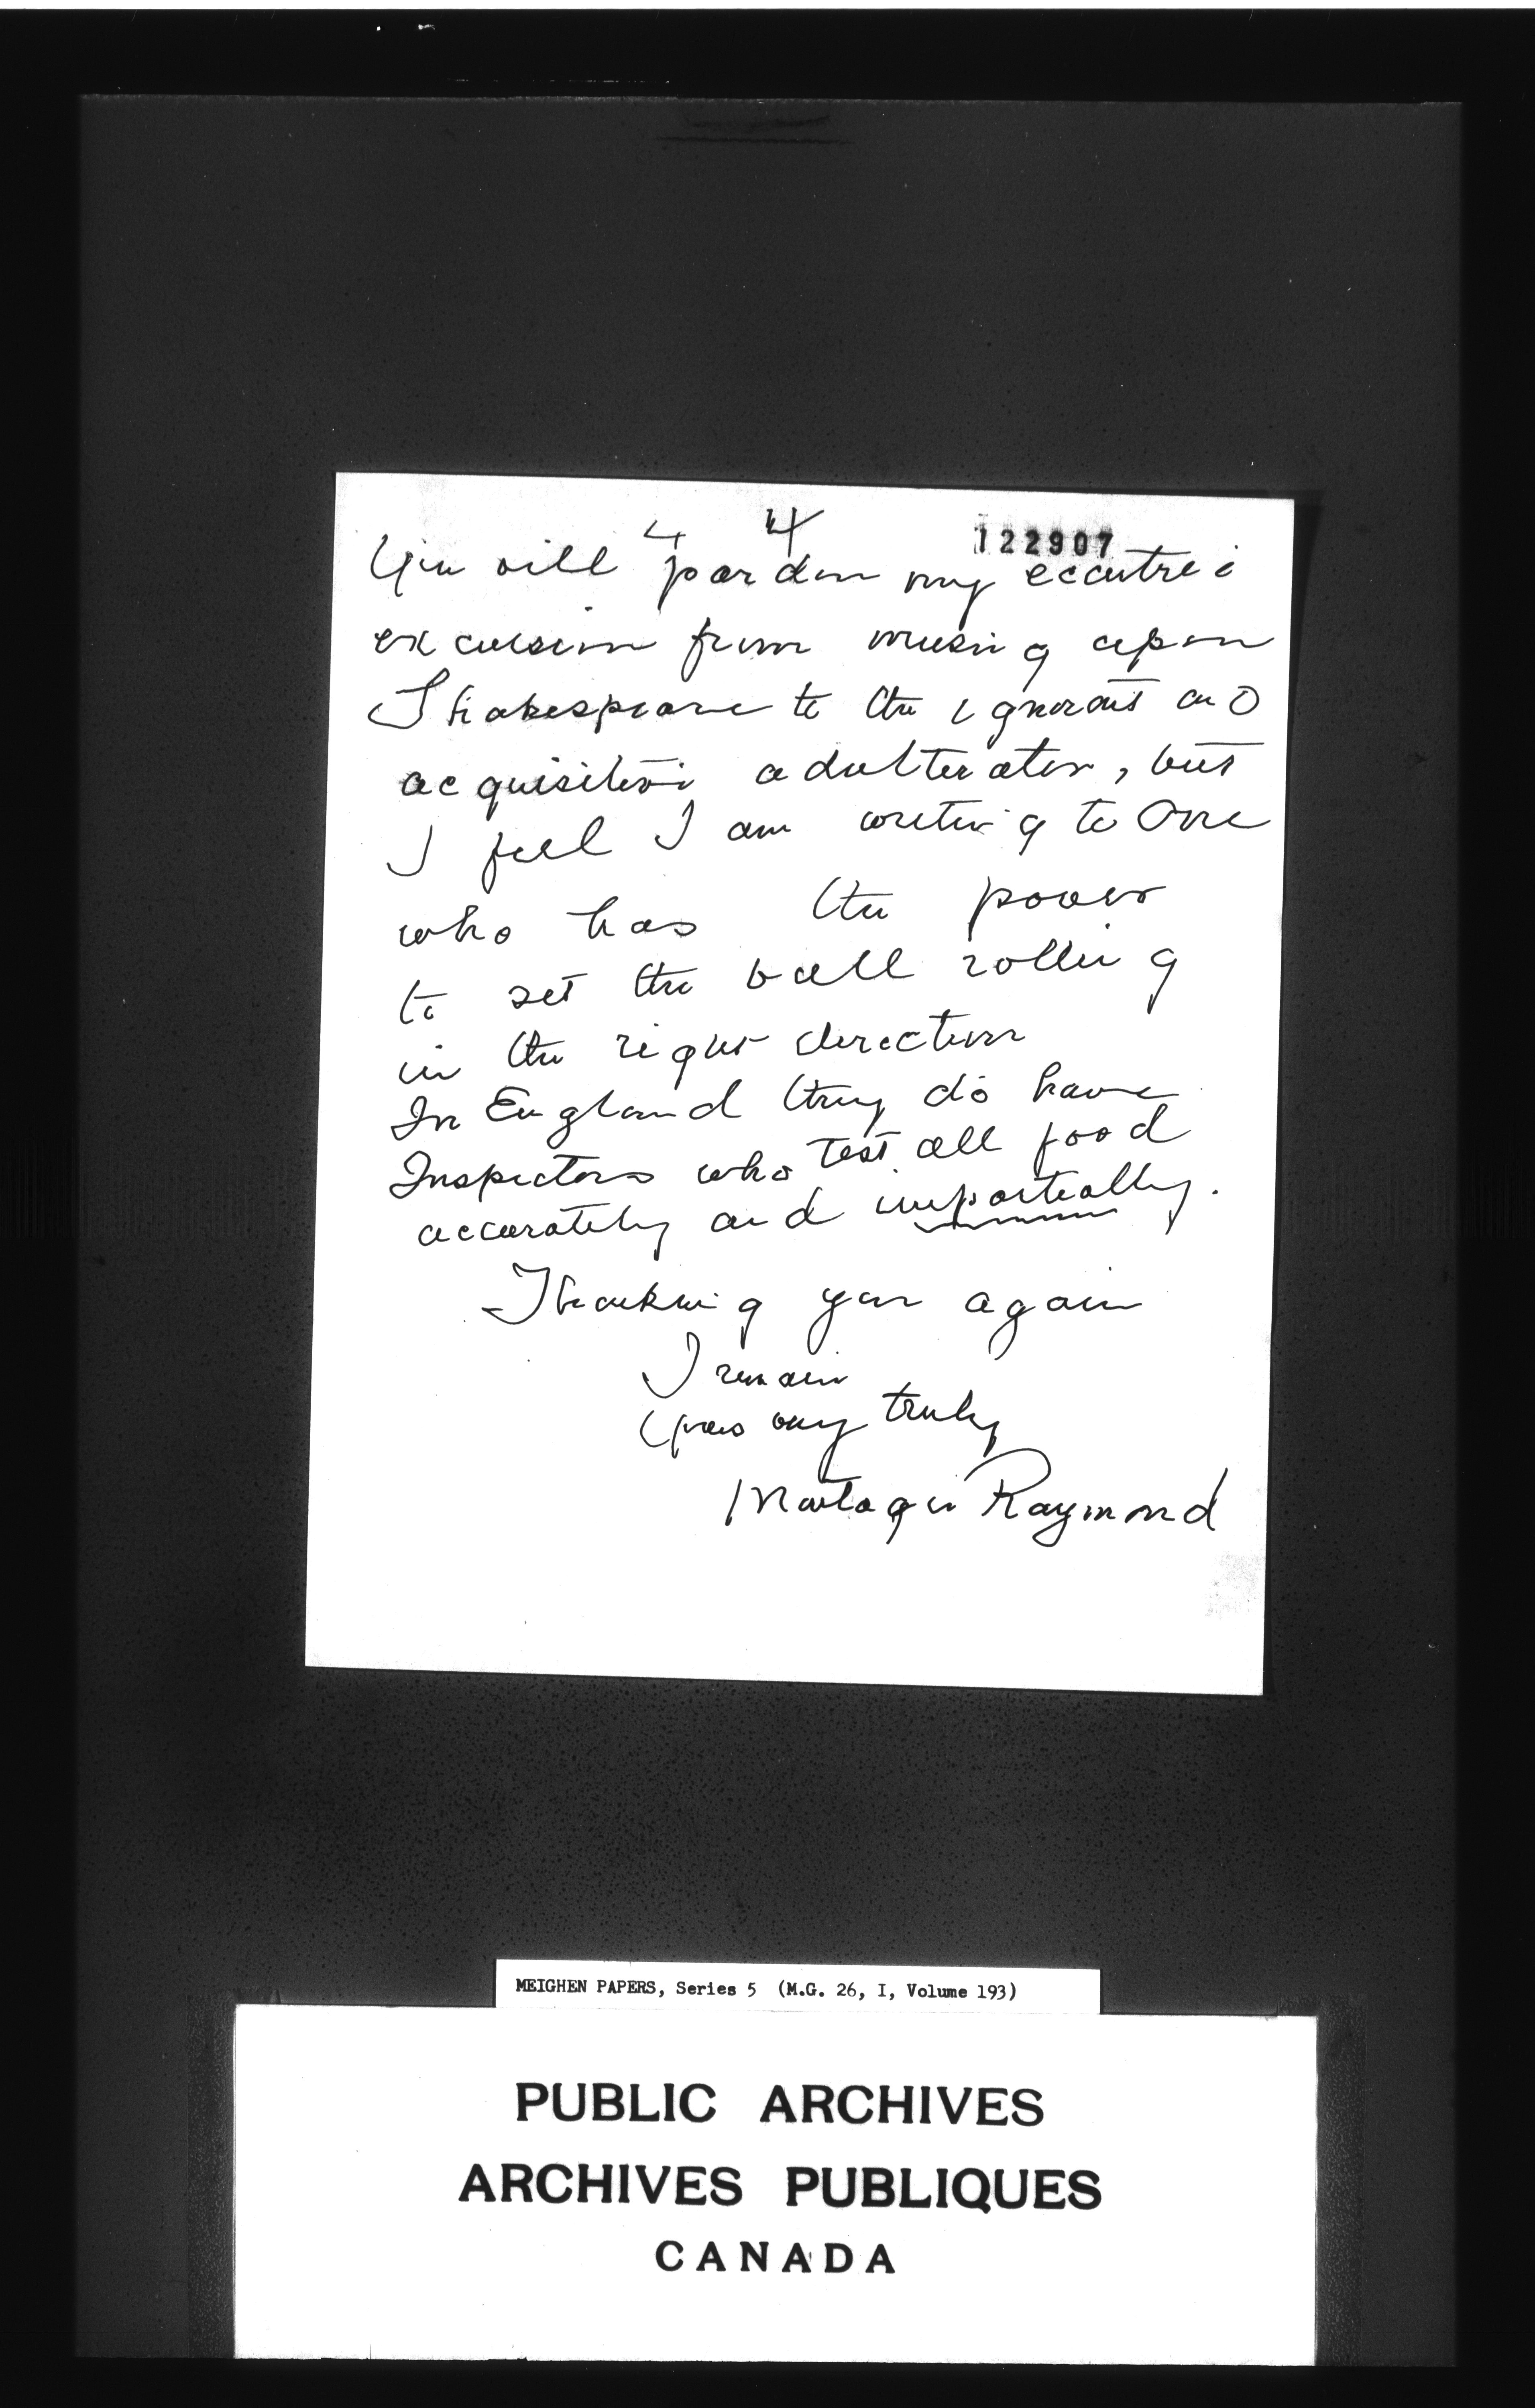 4 4 122907
You will pardon my eccentric
excursion from musing upon
Shakespeare to the ignorant and
acquisitive adulterator, but
I feel I am writing to One
who has the power
to set the ball rolling
in the right direction
In England they do have
Inspectors who test all food
accurately and impartially.
Thanking you again
I remain
Yours very truly
Montague Raymond
MEIGHEN PAPERS, Series 5 (M.G. 26, I, Volume 193)
PUBLIC ARCHIVES
ARCHIVES PUBLIQUES
CANADA